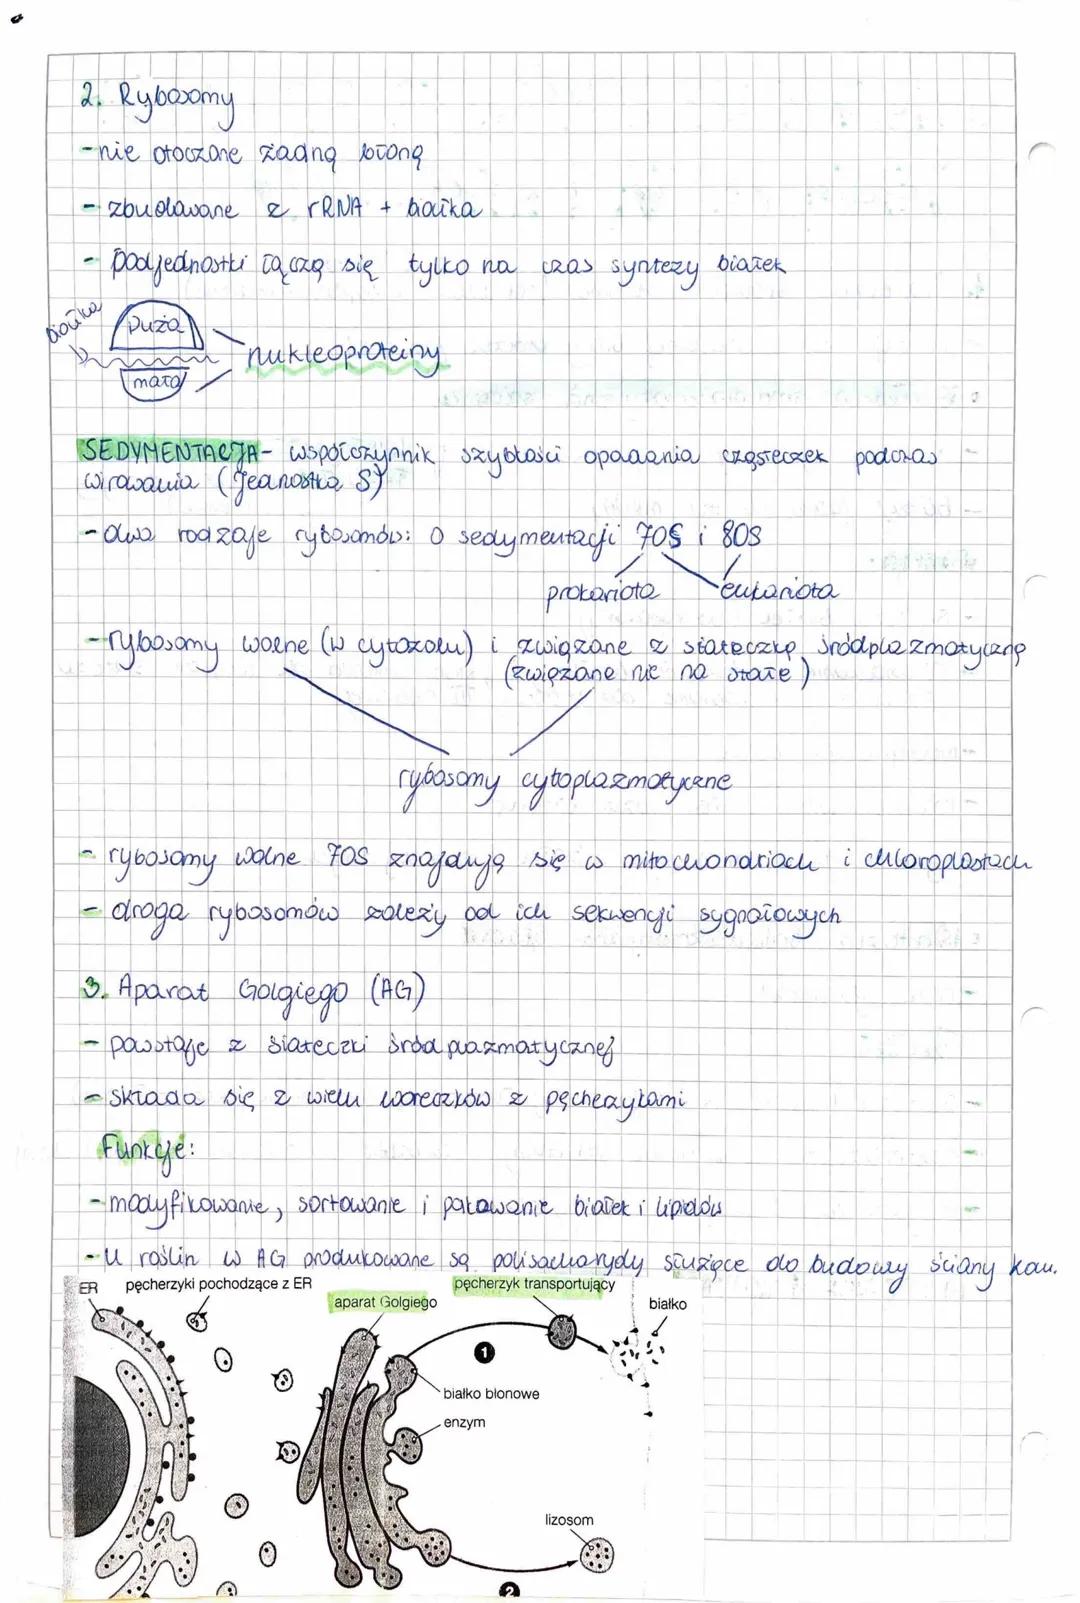 2. Rybosomy
-nie otoczone żadną błoną
- zbudowane z rRNA + białka
- podjednostki łączą się tylko na czas syntezy białek
białka
Duża
mała
nukleoproteiny
SEDYMENTACJA- współczynnik szybkości opadania cząsteczek podczas
wirowania (jednostka S)
-dwa rodzaje rybosomów: o sedymentacji 70S i 80S
prokariota eukariota
-rybosomy wolne (w cytozolu) i związane z siateczką śródplazmatyczną
(związane nie na stałe)
rybosomy cytoplazmatyczne
- rybosomy wolne 70S znajdują się w mitochondriach i chloroplastach
- droga rybosomów zależy od ich sekwencji sygnałowych
3. Aparat Golgiego (AG)
- powstaje z siateczki śródplazmatycznej
- składa się z wielu woreczków z pęcherzykami
Funkcje:
-modyfikowanie, sortowanie i pakowanie białek i lipidów
-U roślin w AG produkowane są polisacharydy służące do budowy ściany kom.
ER
pęcherzyki pochodzące z ER
aparat Golgiego
pęcherzyk transportujący
białko
1
białko błonowe
enzym
lizosom
2